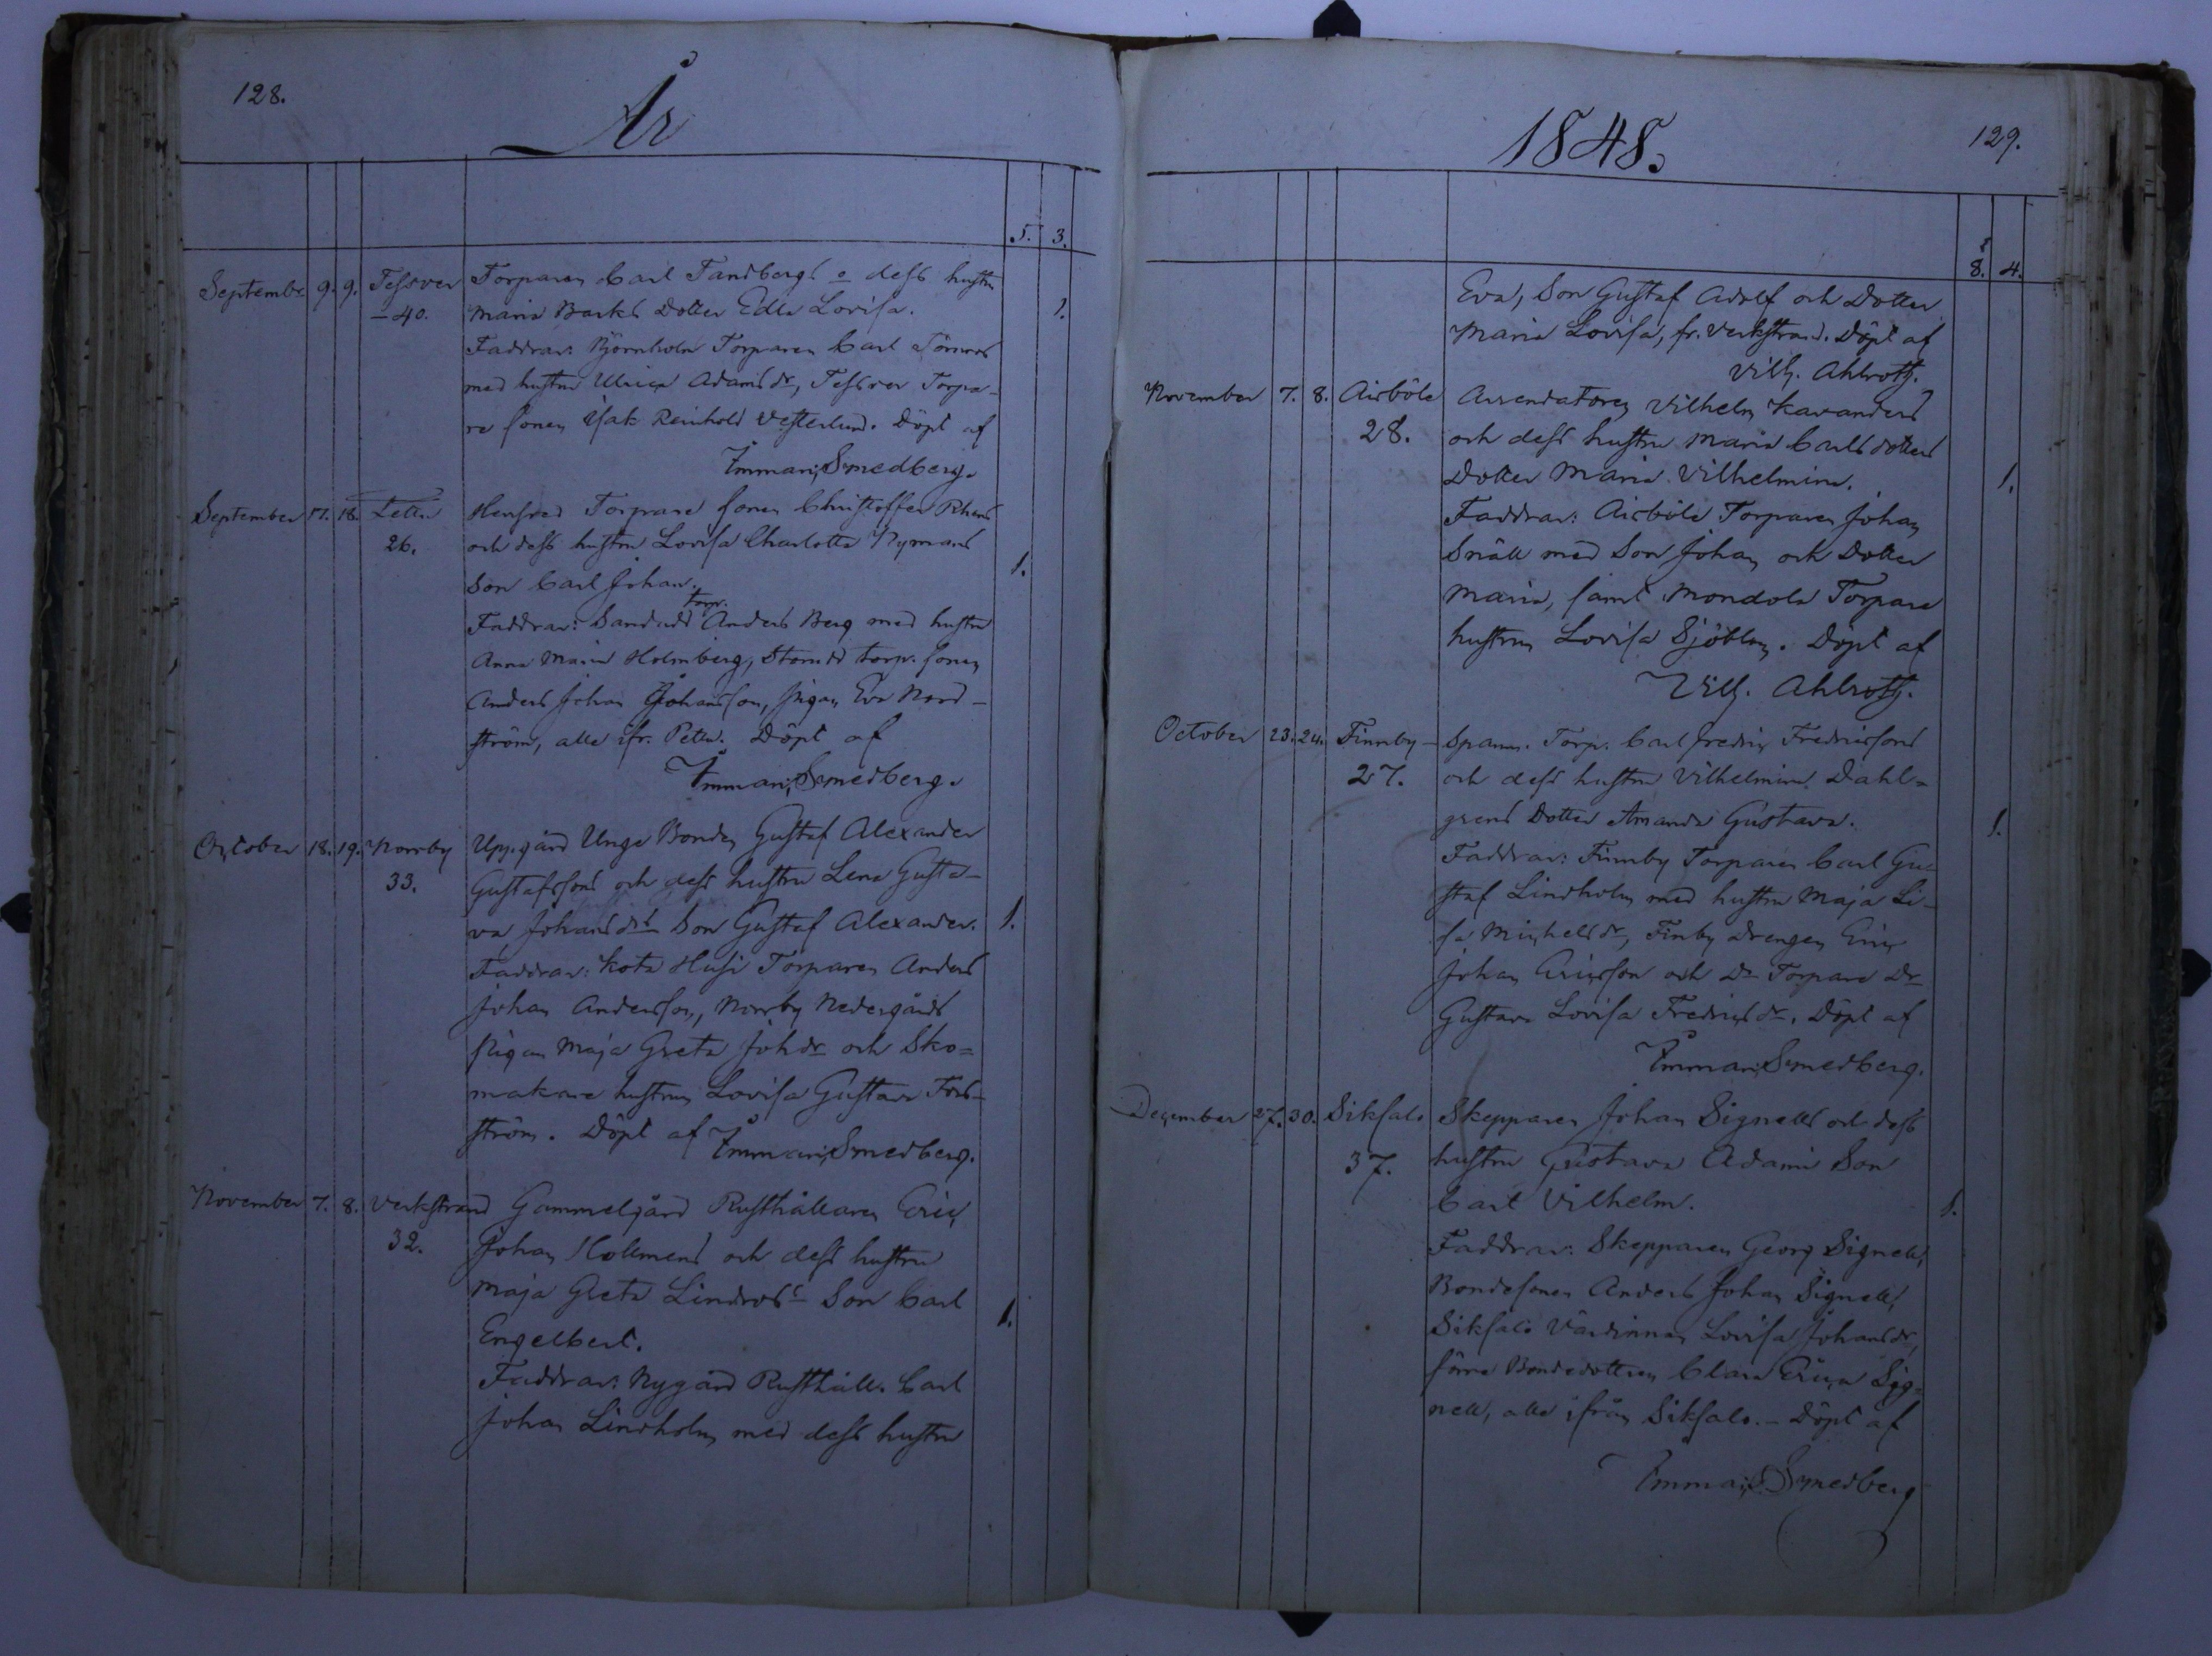 128.
År
5. 3.
September 9. 9. Tessver Torparen Carl Tandbergs o dess hustru
- 40. Maria Barks Dotter Edla Lovisa. 1.
Faddrar: Björnholm Torparen Carl
med hustru Ulrica Adamsdr, Tessver Torpa-
re sonen Isak Reinhold Vesterlund. Döpt af
Imman. Smedberg.
September 17. 18. Torpare sonen Christoffer
26. och dess hustru Lovisa Charlotta Nymans
Son Carl Johan. 1.
torp.
Faddrar: Sandudd Anders Berg med hustru
Anna Maria Holmberg, torp. sonen
Anders Johan Johansson, pigan Eva Nord-
ström, alla ifr. Döpt af
Imman. Smedberg.
October 18. 19. Norrby Uppgård Unge Bonden Gustaf Alexander
33. Gustafssons och dess hustru Lena Gusta-
va Johansdrs Son Gustaf Alexander. 1.
Faddrar: Kota Husi Torparen Anders
Johan Andersson, Norrby Nedergårds
pigan Maja Greta Johdr och Sko=
makare hustrun Lovisa Gustava Fors-
ström. Döpt af Imman. Smedberg.
November 7. 8. Verkstrand Gammelgård Rusthållaren Eric
32. Johan Hollmens och dess hustru
Maja Greta Lindros's Son Carl
Engelbert. 1.
Faddrar: Nygård Rusthåll. Carl
Johan Lindholm med dess hustru
1848.
129.
8. 4.
Eva, Son Gustaf Adolf och Dotter
Maria Lovisa, fr. Verkstrand. Döpt af
Vilh. Ahlroth.
November 7. 8. Aisböle Arrendatoren Vilhelm Kavanders
28. och dess hustru Maria Carlsdotters
Dotter Maria Vilhelmina. 1.
Faddrar: Aisböle Torparen Johan
Snäll med Son Johan och Dotter
Maria, samt Mondola Torpare
hustrun Lovisa Sjöblom. Döpt af
Vilh. Ahlroth.
October 23. 24. Finnby - Spanm. Torp. Carl Fredric Fredricssons
27. och dess hustru Vilhelmina Dahl=
grens Dotter Amanda Gustava. 1.
Faddrar: Finnby Torparen Carl Gu-
staf Lindholm med hustru Maja Li-
sa Michelsdr, Finby Drengen Eric
Johan Ericsson och Do Torpare Dr
Gustava Lovisa Fredricsdr. Döpt af
Imman. Smedberg.
December 27. 30. Siksalo Skepparen Johan Signells och dess
37. hustru Gustava Adami Son
Carl Vilhelm. 1.
Faddrar: Skepparen Georg Signell,
Bondesonen Anders Johan Signell,
Siksalo Värdinnan Lovisa Johansdr,
förra Bondedottren Clara Erica Sig=
nell, alla ifrån Siksalo. - Döpt af
Imman. Smedberg